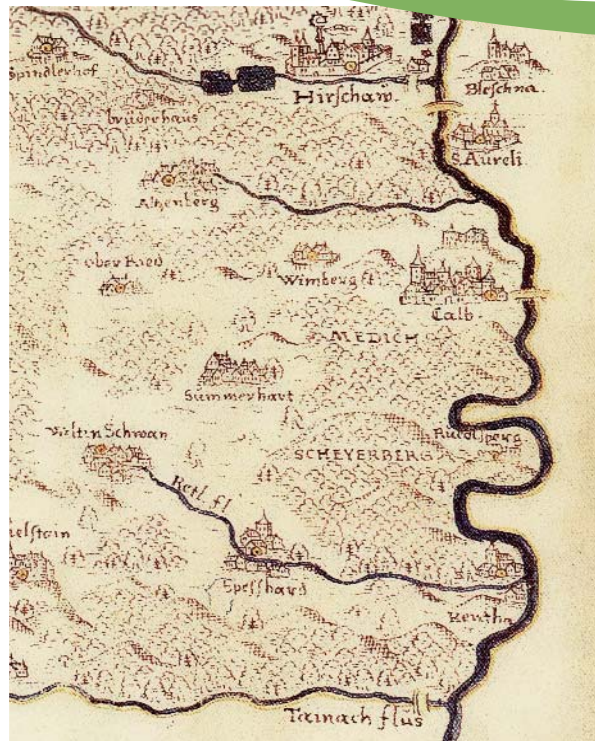 Spindlerhof
Hirschaw.
Bleschna
bruderhaus
S. Aureli
Altzenberg
Ober Ried
Wimberg st.
Calb.
MEDICH
Summenhart
Weltin Schwan
Rudelsperg
SCHEYERBERG
Retl. fl.
elstain
Speshard
Kentha
Tainach flus